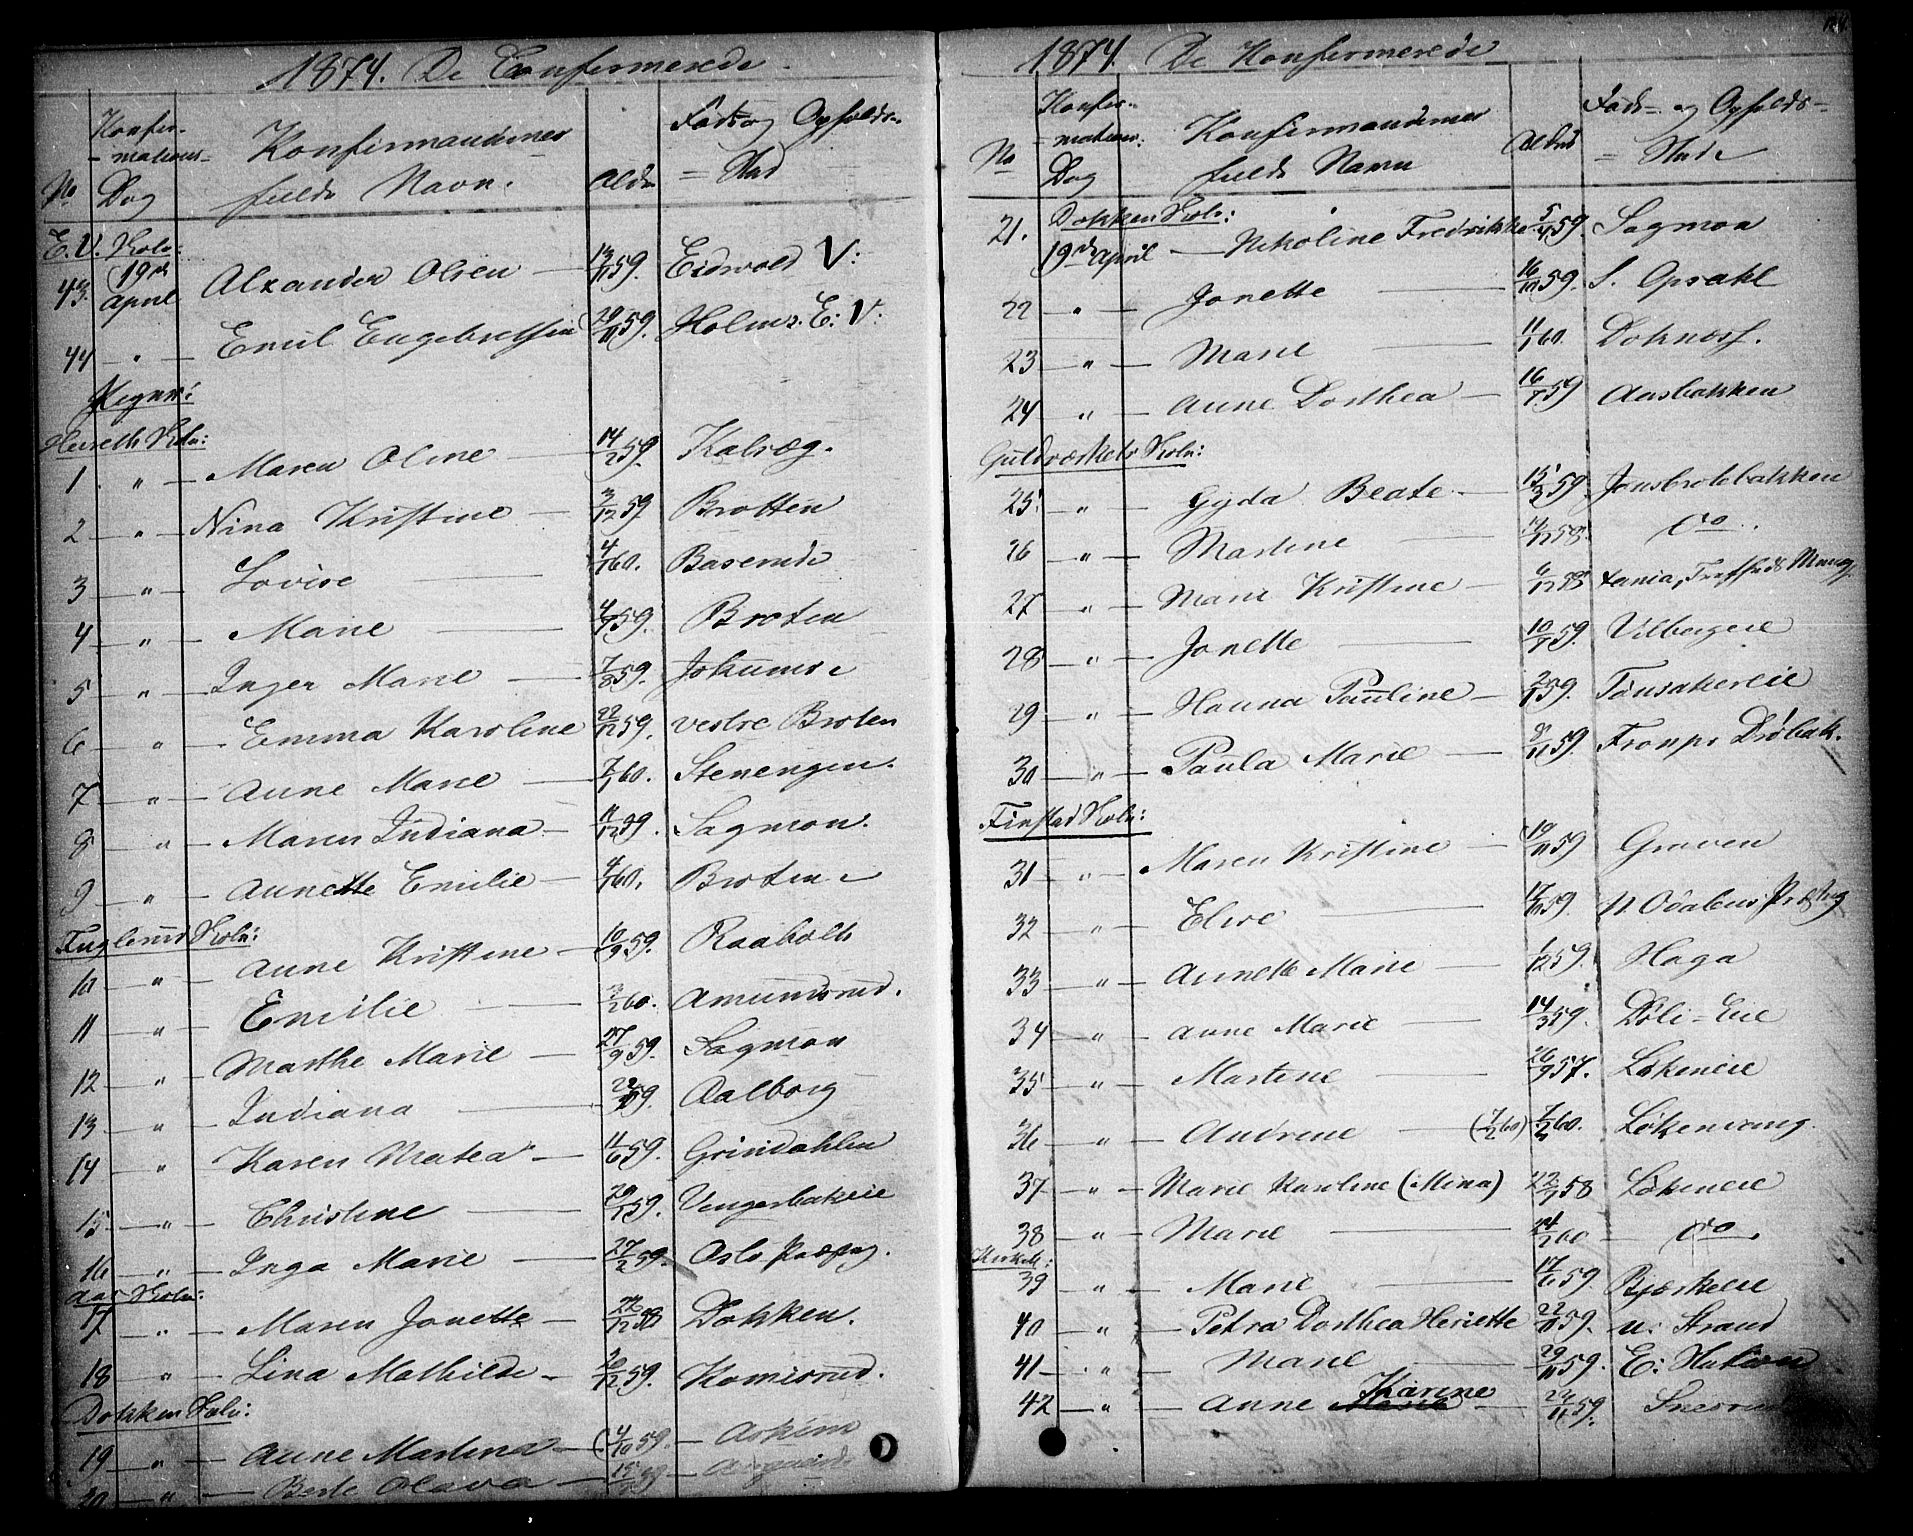 1874. De Confirmerede.
No Konfir-mations-Dag Konfirmandernes fulde Navn. Alder Føds og Opholds-Sted
E. V. Skole:
43. 19de April Alexander Olsen — 13/11 59. Eidsvold V:
44 " — Emil Engebretsen 29/11 59. Holms. E: V:
Pigerne:
Skole:
1. " — Maren Oline — 14/2 59. Kalvæg.
2 — " — Nina Kristine — 3/12 59 Brotten
3 — " — Lovise — 4/1 60. Baserud
4 — " — Marie — 59. Broten
5 — " — Inger Marie — 7/8 59.
6 — " — Emma Karoline 22/12 59. vestre Broten
7 — " — Anne Marie — 7/1 60. Stenengen.
8 — " — Maren Indiana — 11/12 59. Sagmon.
9 — " — Annette Emilie — 4/1 60. Broten
Fuglerud Skole:
10 — " — Anne Kristine — 10/9 59. Raaholt
11 — " — Emilie — 3/2 60. Amundsrud.
12 — " — Marthe Marie — 27/9 59. Sagmon
13 — " — Indiana — 59. Aalborg
14 — " — Karen Matea — 11/6 59. Grindahlen
15 — " — Christine — 59.
16 — " — Inga Marie — 27/2 59. Oslo Præstg.
Aas Skole:
17 — " — Maren Jonette — 22/12 58 Dokken.
18 — " — Lina Mathilde — 59. Komisrud.
Dokken Skole:
19 — " — Anne Martina — 4/10 59. —
20 — " — Berte Olava — 59 —
1874. De Konfirmerede
No Konfir-mations: Dag Konfirmandernes fulde Navn Alder Føds- og Opholds-Sted
Dokken Skole:
21. 19de April — Nikoline Fredrikke 59. Sagmoa
22 " — Jonette — 59. S. Opsahl
23 — " — Marie — 11/1 60.
24 " — Anne Dorthea — 59 Aasbakken
Guldværkets Skole:
25. " — Gyda Beate — 15/3 59. Jonsbrotebakken
26 — " — Martine — 14/12 58. do.
27 — " — Marie Kristine — 6/12 58
28 — " — Jonette — 59. Vilbergeie
29 — " — Hanna Pauline — 59. Tønsakereie
30 — " — Paula Marie — 8/11 59. Drøbak.
Finstad Skole:
31 — " — Maren Kristine — 19/11 59 Graven
32 — " — Elise — 59 N. Odalens Præstg
33 — " — Annette Marie — 1/12 59. Haga
34 — " — Anne Marie — 14/3 59. Døli-Eie
35 — " — Martine — 26/9 57. Løkeneie
36 — " — Andrine — (7/2 60) 60. Løkenvang.
37 — " — Marie Karoline (Mina) 58 Løkeneie
38 — " — Marie — 24/2 60 — do.
39 — " — Marie — 17/6 59. Bjerkeeie
40 — " — Petra Dorthea Heriette 22/11 59. n: Strand
41 — " — Marie — 29/11 59. E:
42 — " — Anne Marie Karine — 59.